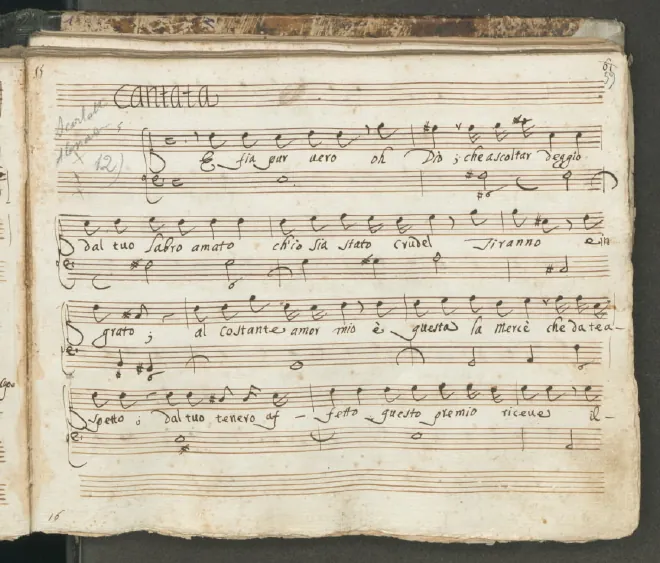 15
61
59
Cantata
Scarlatti
12)
E sia pur vero oh Dio ; che ascoltar deggio
dal tuo labro amato ch'io sia stato crudel Tiranno e in-
grato ; al costante amor mio è questa la mercè che da te a-
spetto ; dal tuo tenero af - fetto questo premio riceve il-
16